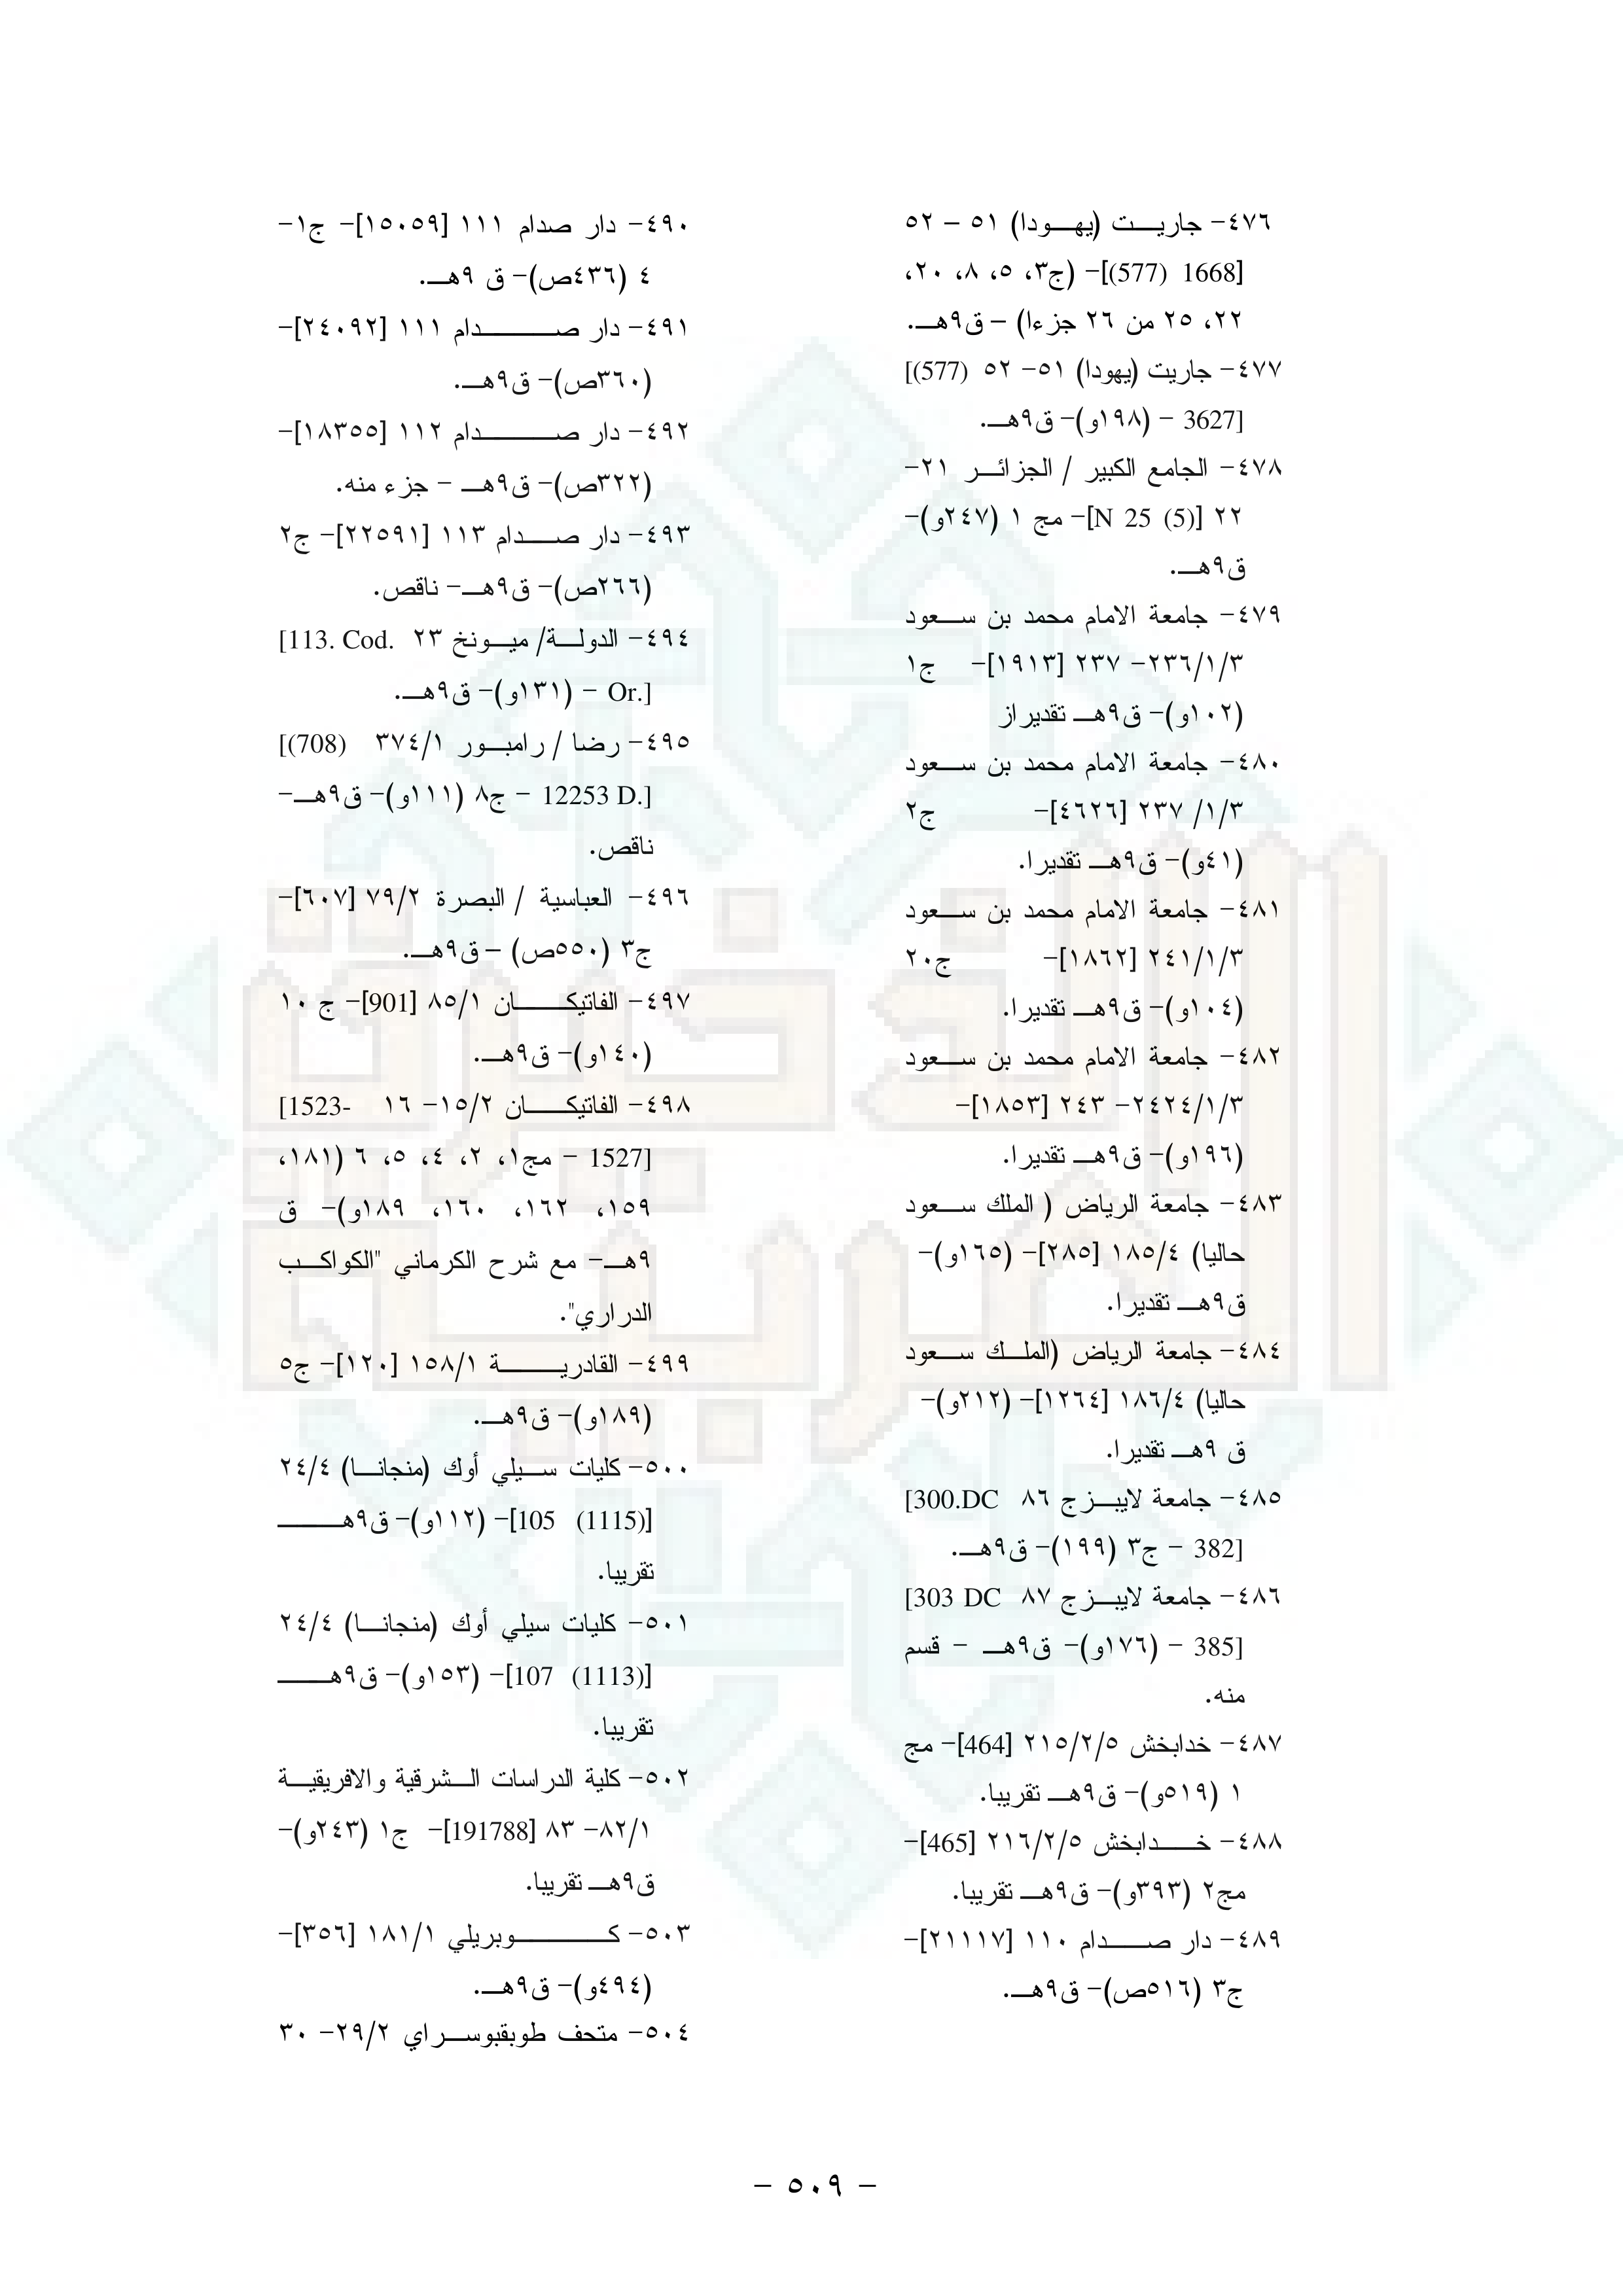 ٤٧٦- جاريت (يهودا) ٥١ – ٥٢
[(577) 1668]- (ج٣، ٥، ٨، ٢٠،
٢٢، ٢٥ من ٢٦ جزءا) – ق٩هـ.
٤٧٧- جاريت (يهودا) ٥١- ٥٢ [(577)
3627] - (١٩٨و)- ق٩هـ.
٤٧٨- الجامع الكبير / الجزائر ٢١-
٢٢ [N 25 (5)]- مج ١ (٢٤٧و)-
ق٩هـ.
٤٧٩- جامعة الامام محمد بن سعود
٢٣٦/١/٣- ٢٣٧ [١٩١٣]- ج١
(١٠٢و)- ق٩هـ تقديراز
٤٨٠- جامعة الامام محمد بن سعود
٣/١/ ٢٣٧ [٤٦٢٦]- ج٢
(٤١و)- ق٩هـ تقديرا.
٤٨١- جامعة الامام محمد بن سعود
٢٤١/١/٣ [١٨٦٢]- ج٢٠
(١٠٤و)- ق٩هـ تقديرا.
٤٨٢- جامعة الامام محمد بن سعود
٢٤٢٤/١/٣- ٢٤٣ [١٨٥٣]-
(١٩٦و)- ق٩هـ تقديرا.
٤٨٣- جامعة الرياض ( الملك سعود
حاليا) ١٨٥/٤ [٢٨٥]- (١٦٥و)-
ق٩هـ تقديرا.
٤٨٤- جامعة الرياض (الملك سعود
حاليا) ١٨٦/٤ [١٢٦٤]- (٢١٢و)-
ق ٩هـ تقديرا.
٤٨٥- جامعة لايبزج ٨٦ [300.DC
382] - ج٣ (١٩٩)- ق٩هـ.
٤٨٦- جامعة لايبزج ٨٧ [303 DC
385] - (١٧٦و)- ق٩هـ - قسم
منه.
٤٨٧- خدابخش ٢١٥/٢/٥ [464]- مج
١ (٥١٩و)- ق٩هـ تقريبا.
٤٨٨- خدابخش ٢١٦/٢/٥ [465]-
مج٢ (٣٩٣و)- ق٩هـ تقريبا.
٤٨٩- دار صدام ١١٠ [٢١١١٧]-
ج٣ (٥١٦ص)- ق٩هـ.
٤٩٠- دار صدام ١١١ [١٥٠٥٩]- ج١-
٤ (٤٣٦ص)- ق ٩هـ.
٤٩١- دار صدام ١١١ [٢٤٠٩٢]-
(٣٦٠ص)- ق٩هـ.
٤٩٢- دار صدام ١١٢ [١٨٣٥٥]-
(٣٢٢ص)- ق٩هـ - جزء منه.
٤٩٣- دار صدام ١١٣ [٢٢٥٩١]- ج٢
(٢٦٦ص)- ق٩هـ- ناقص.
٤٩٤- الدولة/ ميونخ ٢٣ [113. Cod.
Or.] - (١٣١و)- ق٩هـ.
٤٩٥- رضا / رامبور ٣٧٤/١ [(708)
12253 D.] - ج٨ (١١١و)- ق٩هـ-
ناقص.
٤٩٦- العباسية / البصرة ٧٩/٢ [٦٠٧]-
ج٣ (٥٥٠ص) – ق٩هـ.
٤٩٧- الفاتيكان ٨٥/١ [901]- ج ١٠
(١٤٠و)- ق٩هـ.
٤٩٨- الفاتيكان ١٥/٢- ١٦ [1523-
1527] - مج١، ٢، ٤، ٥، ٦ (١٨١،
١٥٩، ١٦٢، ١٦٠، ١٨٩و)- ق
٩هـ- مع شرح الكرماني "الكواكب
الدراري".
٤٩٩- القادرية ١٥٨/١ [١٢٠]- ج٥
(١٨٩و)- ق٩هـ.
٥٠٠- كليات سيلي أوك (منجانا) ٢٤/٤
[105 (1115)]- (١١٢و)- ق٩هـ
تقريبا.
٥٠١- كليات سيلي أوك (منجانا) ٢٤/٤
[107 (1113)]- (١٥٣و)- ق٩هـ
تقريبا.
٥٠٢- كلية الدراسات الشرقية والافريقية
٨٢/١- ٨٣ [191788]- ج١ (٢٤٣و)-
ق٩هـ تقريبا.
٥٠٣- كوبريلي ١٨١/١ [٣٥٦]-
(٤٩٤و)- ق٩هـ.
٥٠٤- متحف طوبقبوسراي ٢٩/٢- ٣٠
- ٥٠٩ -